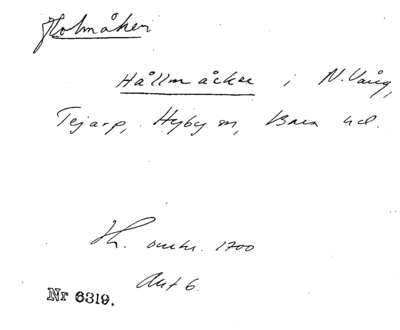 Holmåker
Hållmåcker i N. Vång,
Tejarp, Hyby sn, Bara hd.
Kh. omkr. 1700
Akt 6.
Nr 6319.